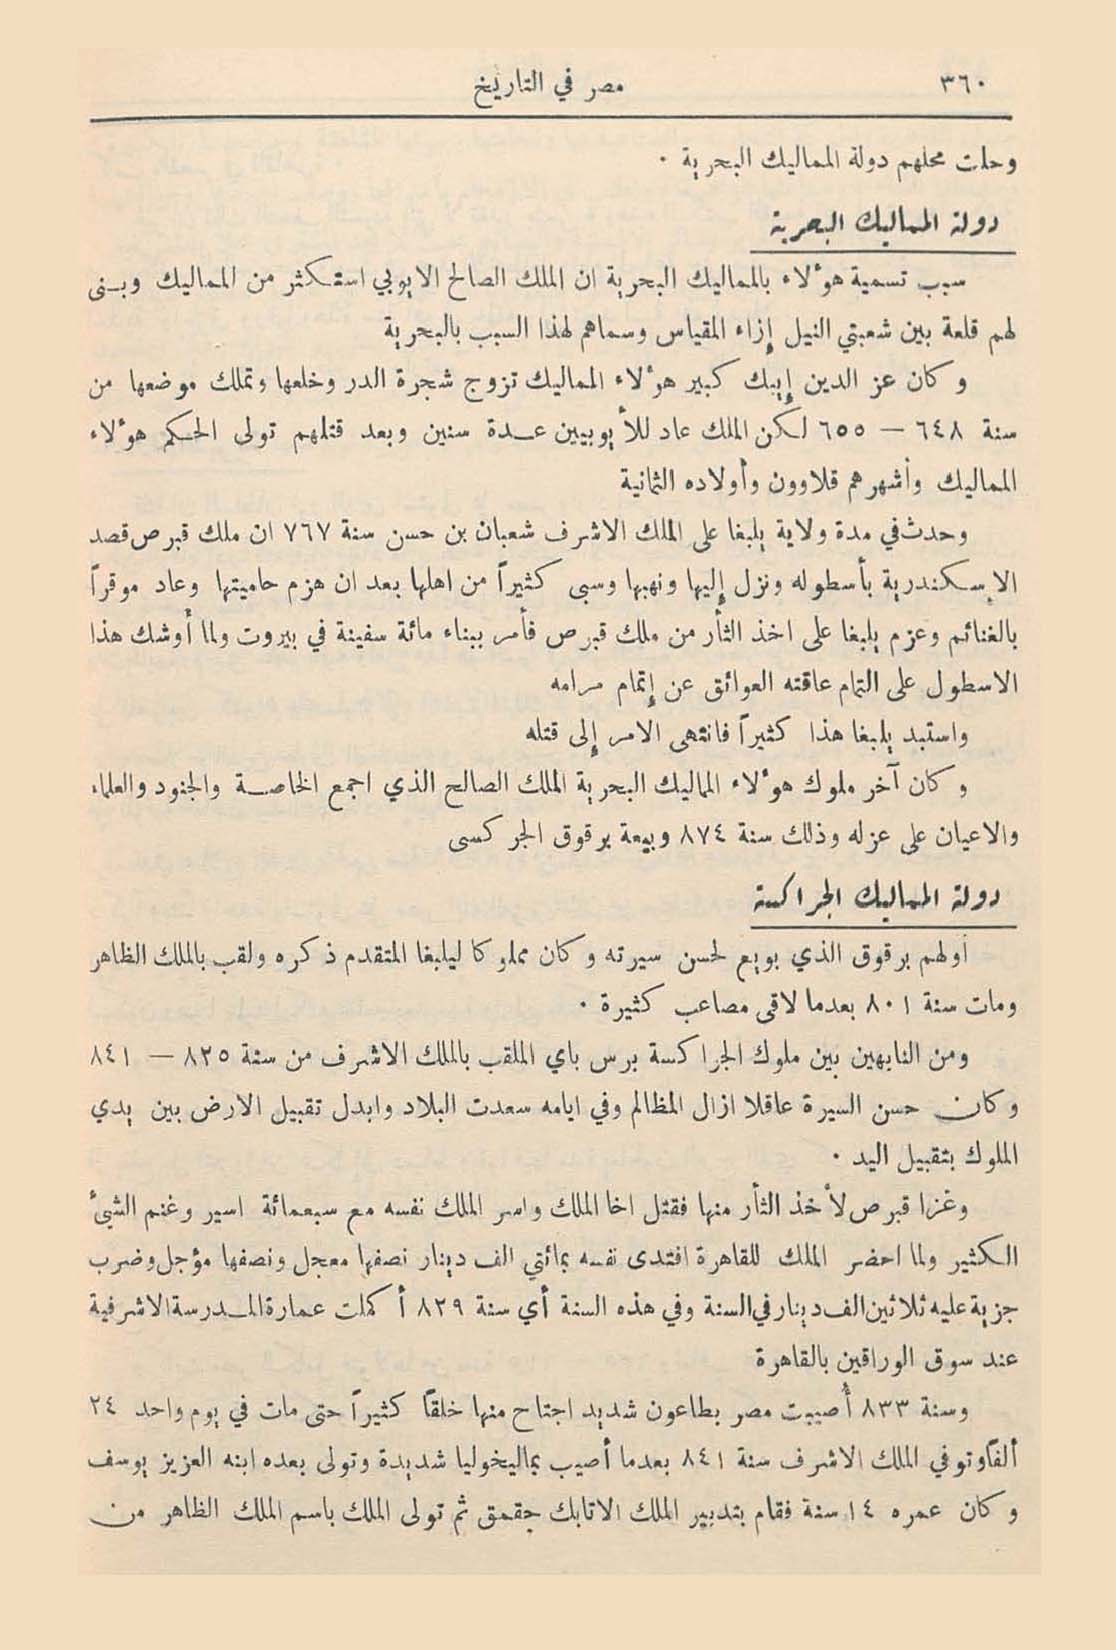 ٣٦٠
مصر في التاريخ
وحلت محلهم دولة المماليك البحرية ٠
دولة المماليك البحرية
سبب تسمية هؤلاء بالمماليك البحرية ان الملك الصالح الايوبي استكثر من المماليك وبنى
لهم قلعة بين شعبتي النيل إزاء المقياس وسماهم لهذا السبب بالبحرية
وكان عز الدين إيبك كبير هؤلاء المماليك تزوج شجرة الدر وخلعها وتملك موضعها من
سنة ٦٤٨ — ٦٥٥ لكن الملك عاد للأيوبيين عدة سنين وبعد قتلهم تولى الحكم هؤلاء
المماليك وأشهرهم قلاوون وأولاده الثمانية
وحدث في مدة ولاية يلبغا على الملك الاشرف شعبان بن حسن سنة ٧٦٧ ان ملك قبرص قصد
الإسكندرية بأسطوله ونزل إليها ونهبها وسبى كثيراً من اهلها بعد ان هزم حاميتها وعاد موقراً
بالغنائم وعزم يلبغا على اخذ الثأر من ملك قبرص فأمر ببناء مائة سفينة في بيروت ولما أوشك هذا
الاسطول على التمام عاقته العوائق عن إتمام مرامه
واستبد يلبغا هذا كثيراً فانتهى الامر إلى قتله
وكان آخر ملوك هؤلاء المماليك البحرية الملك الصالح الذي اجمع الخاصة والجنود والعلماء
والاعيان على عزله وذلك سنة ٨٧٤ وبيعة برقوق الجركسى
دولة المماليك الجراكسة
أولهم برقوق الذي بويع لحسن سيرته وكان مملوكا ليلبغا المتقدم ذكره ولقب بالملك الظاهر
ومات سنة ٨٠١ بعدما لاقى مصاعب كثيرة ٠
ومن النابهين بين ملوك الجراكسة برس باي الملقب بالملك الاشرف من سنة ٨٢٥ — ٨٤١
وكان حسن السيرة عاقلا ازال المظالم وفي ايامه سعدت البلاد وابدل تقبيل الارض بين يدي
الملوك بتقبيل اليد ٠
وغزا قبرص لأخذ الثأر منها فقتل اخا الملك واسر الملك نفسه مع سبعمائة اسير وغنم الشيئ
الكثير ولما احضر الملك للقاهرة افتدى نفسه بمائتي الف دينار نصفها معجل ونصفها مؤجل وضرب
جزية عليه ثلاثين الف دينار في السنة وفي هذه السنة أي سنة ٨٢٩ أكملت عمارة المدرسة الاشرفية
عند سوق الوراقين بالقاهرة
وسنة ٨٣٣ أُصيبت مصر بطاعون شديد اجتاح منها خلقاً كثيراً حتى مات في يوم واحد ٢٤
ألفاً وتوفي الملك الاشرف سنة ٨٤١ بعدما أصيب بماليخوليا شديدة وتولى بعده ابنه العزيز يوسف
وكان عمره ١٤ سنة فقام بتدبير الملك الاتابك جقمق ثم تولى الملك باسم الملك الظاهر من